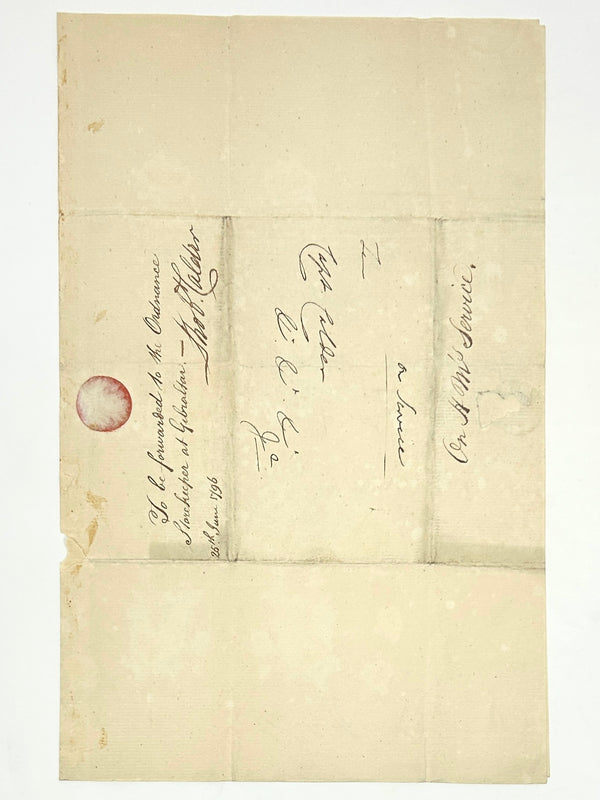 To be forwarded to the Ordnance
Storekeeper at Gibraltar. —
Calder
25th June 1796
To
Capt Calder
&c &c &c
on Service
On H M's Service.